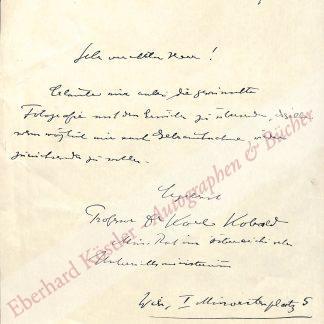 Sehr verehrter Herr!
Erlaube mir anbei die gewünschte
Fotografie mit der Bitte zu übersenden, dieselbe
wenn möglich mir nach Gebrauchnahme wieder
zurücksenden zu wollen.
Ergebenst
Professor Dr Karl Kobald
Min. Rat im österreich.
Unterrichtsministerium
Wien, I Minoritenplatz 5
Eberhard Köstler - Autographen & Bücher